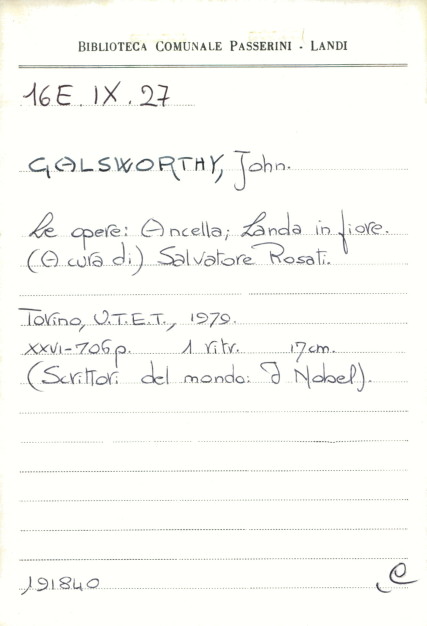 BIBLIOTECA COMUNALE PASSERINI - LANDI
16E. IX. 27
GALSWORTHY, John.
Le opere: Ancella; Landa in fiore.
(A cura di) Salvatore Rosati.
Torino, U.T.E.T., 1979.
XXVI-706p. 1 ritr. 17cm.
(Scrittori del mondo: I Nobel).
191840 C